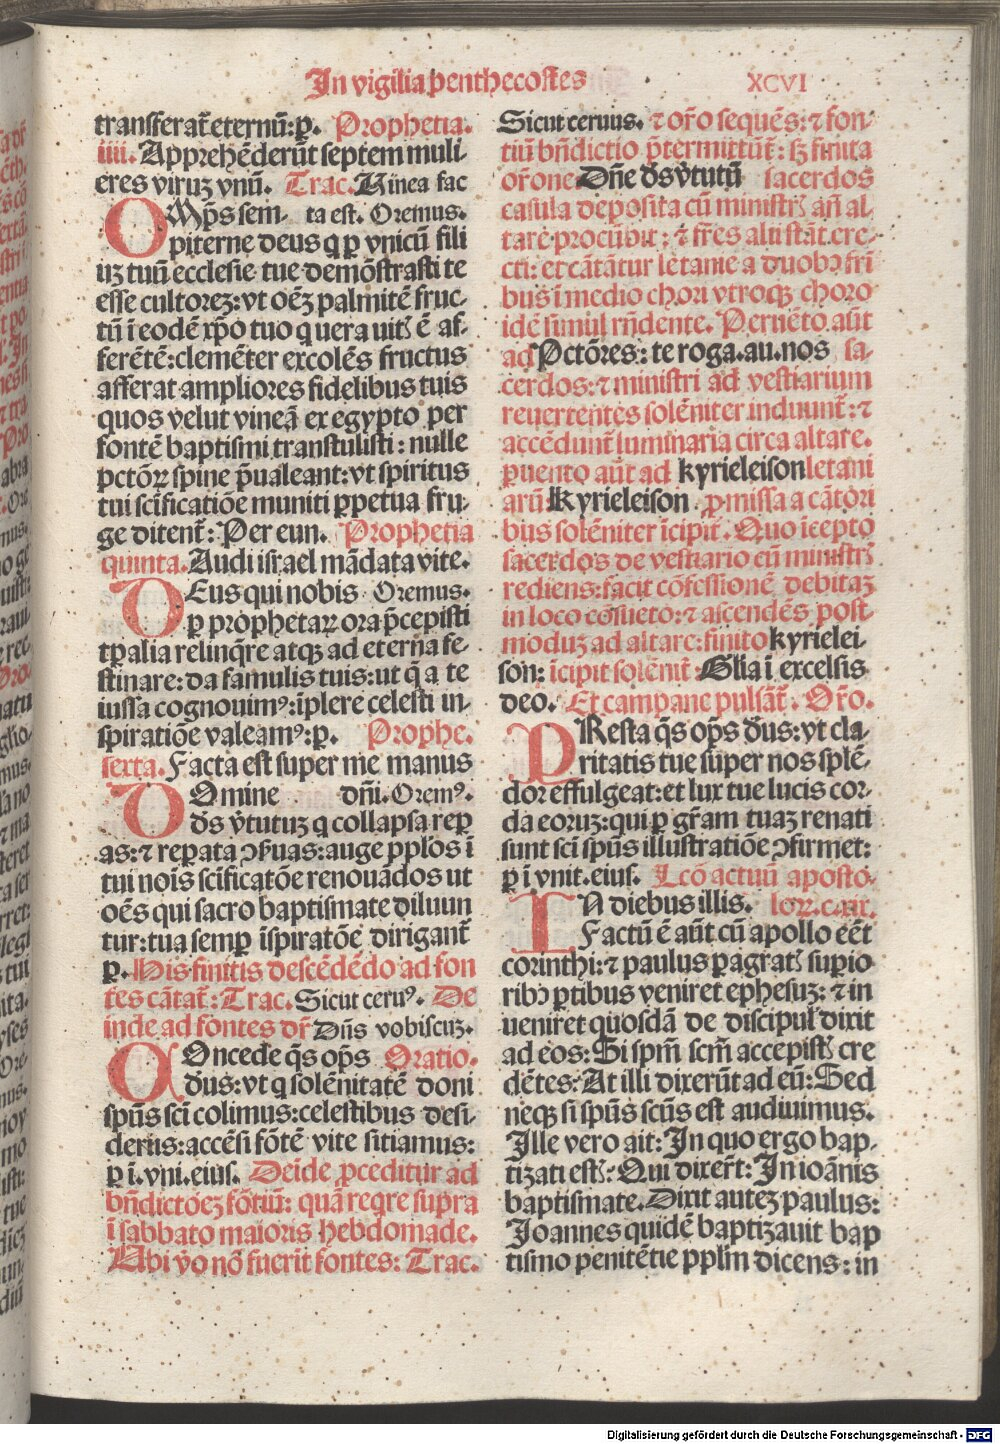 In vigilia penthecostes XCVI
transferat̄ eternū: ꝑ. Prophetia.
iiii. Apprehēderūt septem muli-
eres viruꝫ vnū. Trac. Uinea fac
OMp̄s sem- ta est. Oremus.
piterne deus q ꝑ vnicū fili
uꝫ tuū ecclesie tue demōstrasti te
esse cultoreꝫ: vt oēꝫ palmitē fruc-
tū ī eodē xp̄o tuo q uera uitꝭ ē af-
ferētē: clemēter excolēs fructus
afferat ampliores fidelibus tuis
quos velut vineā ex egypto per
fontē baptismi transtulisti: nulle
pctōꝝ spine p̄ualeant: vt spiritus
tui scīficatiōe muniti ꝑpetua fru-
ge ditent̄: Per eun. Prophetia
quinta. Audi israel mādata vite.
DEus qui nobis Oremus.
ꝑ prophetaꝝ ora p̄cepisti
tꝑalia relinq̄re atqꝫ ad eterna fe-
stinare: da famulis tuis: ut q̄ a te
iussa cognouimꝰ: īplere celesti in-
spiratiōe valeamꝰ: ꝑ. Prophe.
sexta. Facta est super me manus
DOmine dn̄i. Oremꝰ.
dꝰs v̄tutuꝫ q collapsa reꝑ
as: ⁊ reꝑata ↄẜuas: auge pplōs ī
tui noīs scīficatōe renouādos ut
oēs qui sacro baptismate diluun
tur: tua semꝑ īspiratōe dirigant̄
ꝑ. His finitis descēdēdo ad fon
tes cātat̄: Trac. Sicut ceruꝰ. De
inde ad fontes dr̄ Dn̄s vobiscuꝫ.
COncede q̄s op̄s Oratio.
dꝰus: vt q solēnitatē doni
spūs scī colimus: celestibus desi-
deriis: accēsi fōtē vite sitiamus:
ꝑ ī. vni. eius. Deīde ꝓceditur ad
bn̄dictōeꝫ fōtiū: quā reqre supra
ī sabbato maioris hebdomade.
Ubi v̄o nō fuerit fontes: Trac.
Sicut ceruus. ⁊ or̄o sequēs: ⁊ fon-
tiū bn̄dictio p̄termittūt̄: sꝫ finita
or̄one Dn̄e dꝰs v̄tutū sacerdos
casula deposita cū ministrꝭ an̄ al-
tare procūbit: ⁊ fr̄es alii stāt ere-
cti: et cātātur letanie a duobꝫ frī
bus ī medio chori vtroqꝫ choro
idē simul rn̄dente. Peruēto aūt
ad Pctōres: te roga. au. nos sa-
cerdos: ⁊ ministri ad vestiarium
reuertentes solēniter induunt̄: ⁊
accēdunt̄ luminaria circa altare.
ꝑuento aūt ad kyrieleison letani
arū Kyrieleison ꝓ missa a cātori
bus solēniter īcipit̄. Quo īcepto
sacerdos de vestiario cū ministrꝭ
rediens: facit cōfessionē debitaꝫ
in loco cōsueto: ⁊ ascendēs post
moduꝫ ad altare: finito kyrielei-
son: īcipit solēnit̄: Glīa ī excelsis
deo. Et campane pulsāt̄. Or̄o.
PResta q̄s op̄s dꝰus: vt cla-
ritatis tue super nos splē-
dor effulgeat: et lux tue lucis cor-
da eoruꝫ: qui ꝑ gr̄am tuaꝫ renati
sunt scī spūs illustratiōe ↄfirmet:
ꝑ ī vnit. eius. Lcō actuū aposto-
IN diebus illis. loꝝ. c. xix.
Factū ē aūt cū apollo eēt
corinthi: ⁊ paulus ꝑagratꝭ suꝑio
ribꝫ ꝑtibus veniret ephesuꝫ: ⁊ in
ueniret quosdā de discipul' dixit
ad eos: Si spm̄ scm̄ accepistꝭ cre
dētes: At illi dixerūt ad eū: Sed
neqꝫ si spūs scūs est audiuimus.
Ille vero ait: In quo ergo bap-
tizati estꝭ: Qui dixer̄t: In ioānis
baptismate. Dixit auteꝫ paulus:
Joannes quidē baptizauit bap
tismo penitētie pplm̄ dicens: in
Digitalisierung gefördert durch die Deutsche Forschungsgemeinschaft - DFG